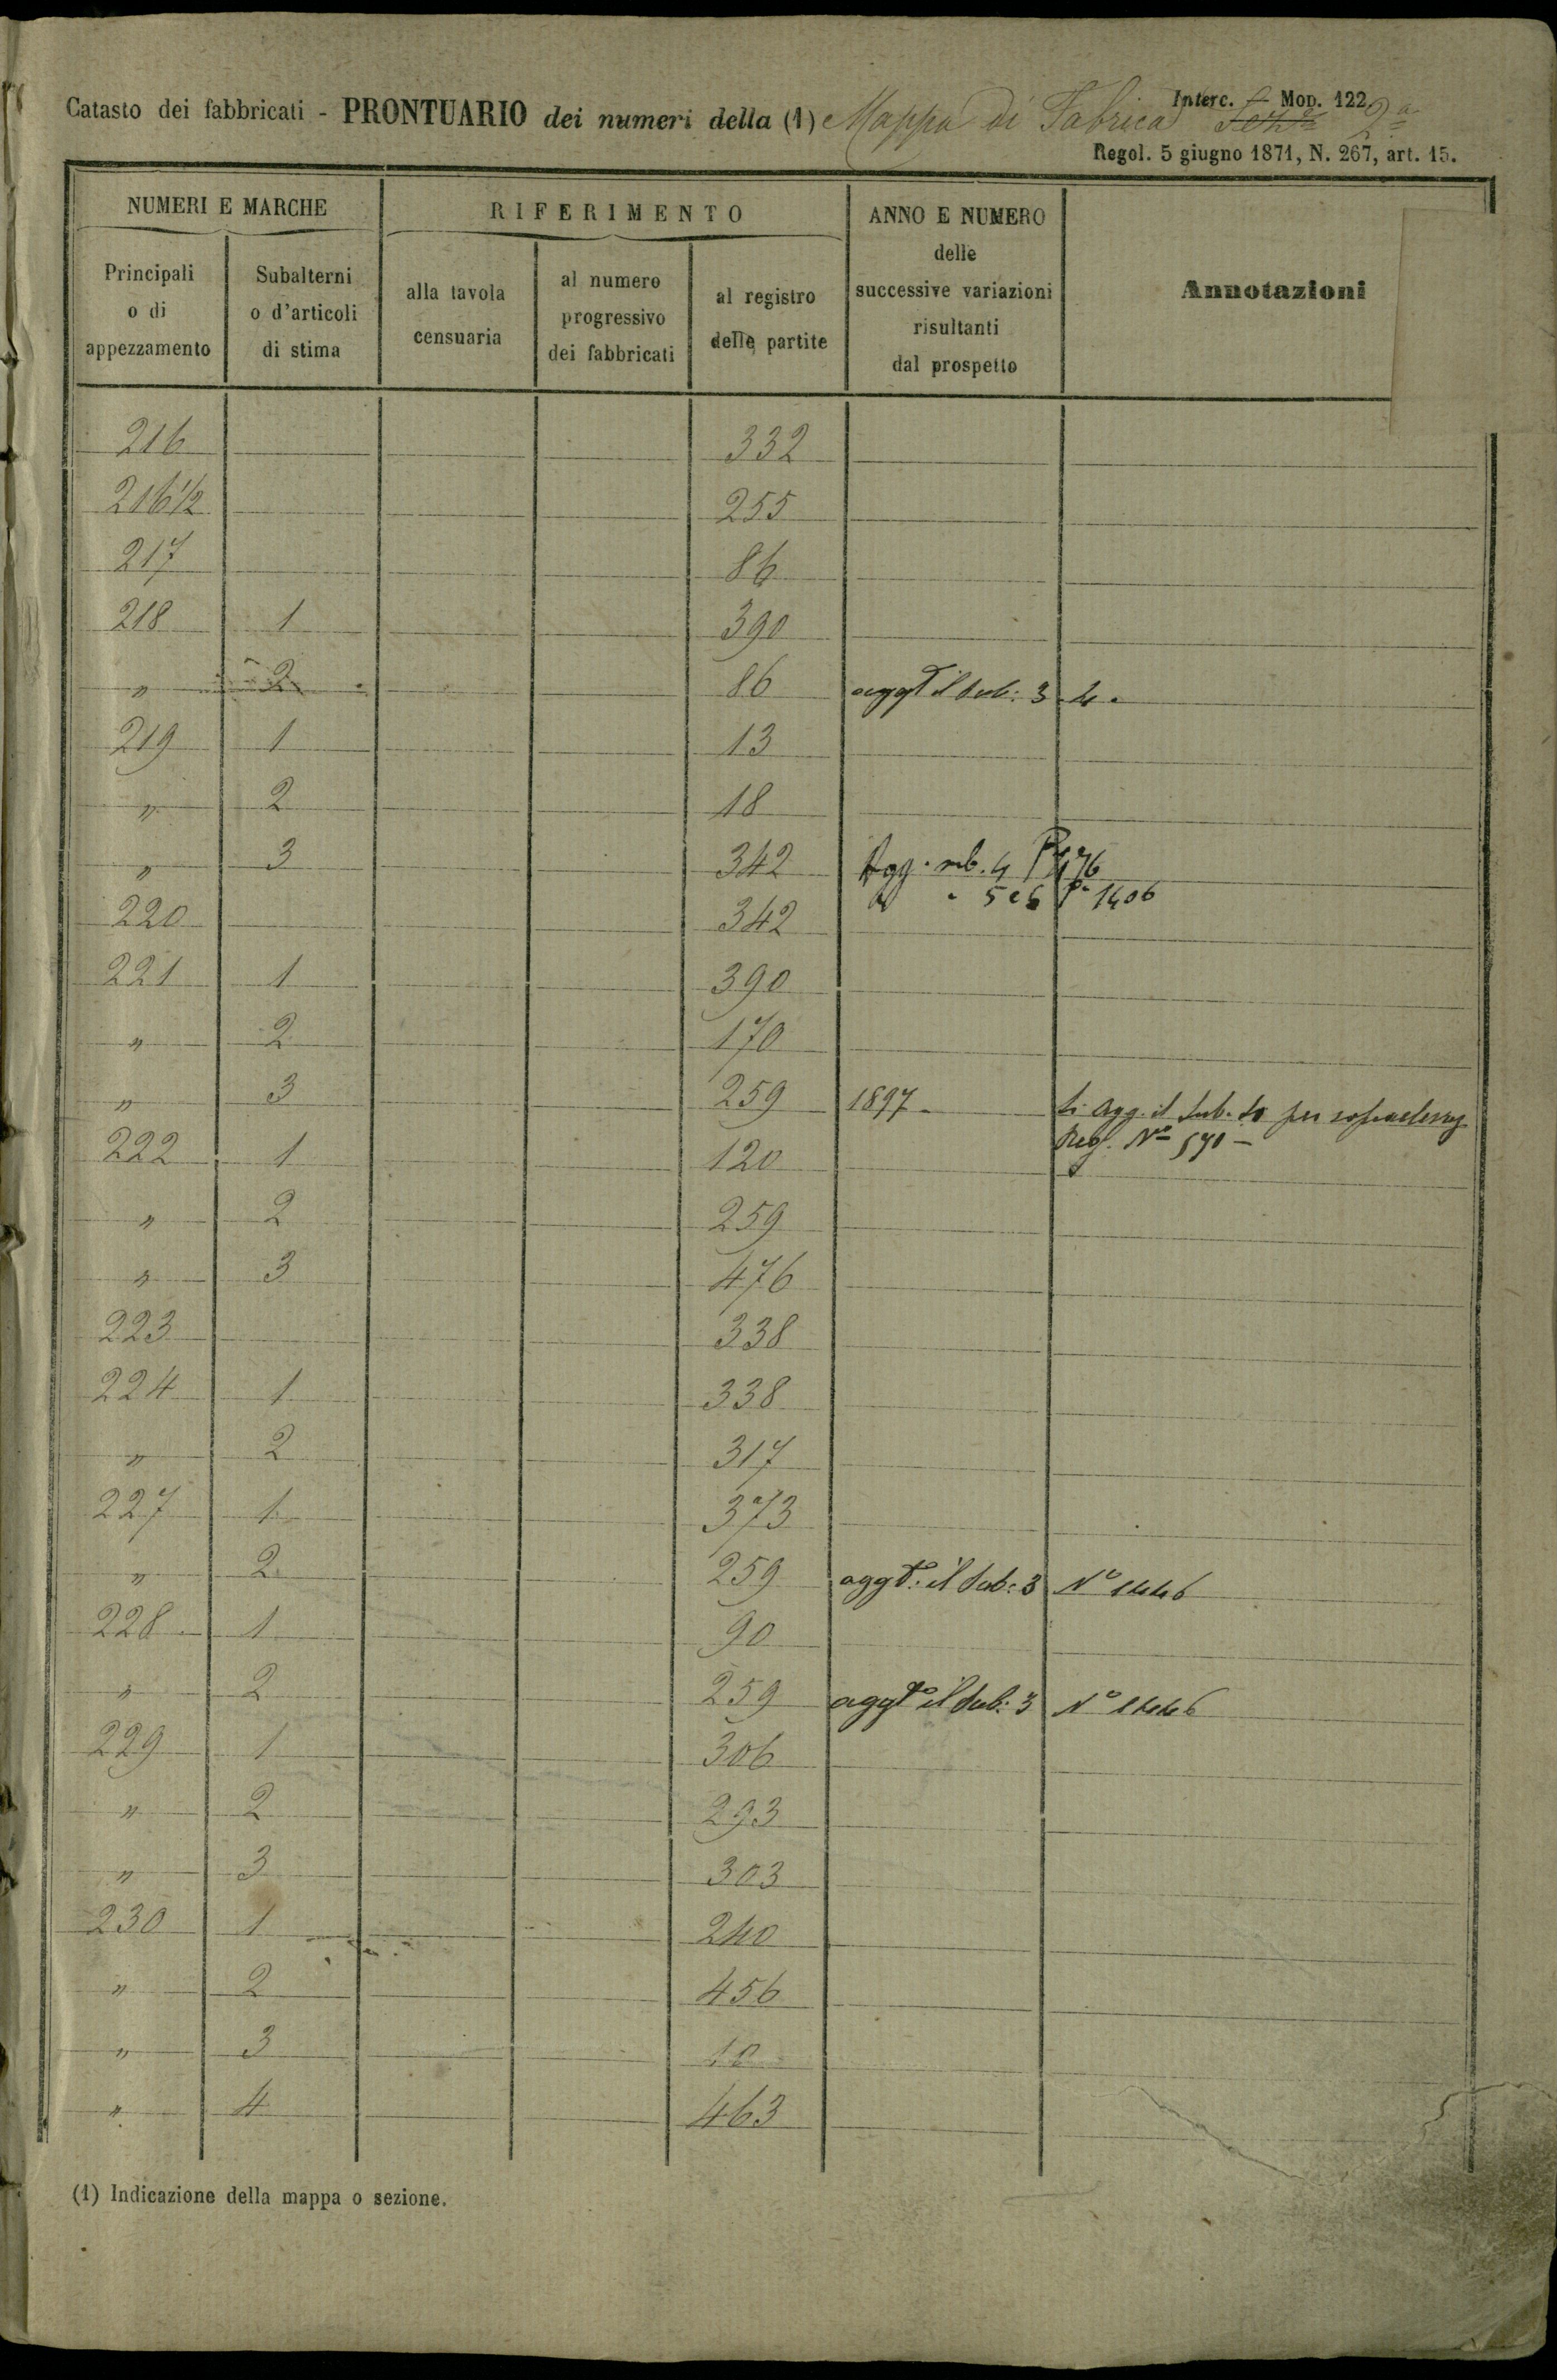 Catasto dei fabbricati - PRONTUARIO dei numeri della (1) Mappa di Fabrica Sez.e 2a
Interc. f Mod. 122
Regol. 5 giugno 1871, N. 267, art. 15.
NUMERI E MARCHE RIFERIMENTO ANNO E NUMERO delle successive variazioni risultanti dal prospetto Annotazioni
Principali o di appezzamento Subalterni o d'articoli di stima alla tavola censuaria al numero progressivo dei fabbricati al registro delle partite
216 332
216 1/2 255
217 86
218 1 390
" 2 86 aggto il sub: 3
219 1 13
" 2 18
" 3 342 Agg. sub. 4 Pa 476
" 5 e 6 Pa 1406
220 342
221 1 390
" 2 170
" 3 259 1897 - Si agg. il sub. per
222 1 120 Reg. No 570 -
" 2 259
" 3 476
223 338
224 1 338
" 2 317
227 1 373
" 2 259 aggto: il sub: 3 No 1446
228 1 90
" 2 259 aggto il sub: 3 No 1446
229 1 306
" 2 293
" 3 303
230 1 240
" 2 456
" 3 10
" 4 463
(1) Indicazione della mappa o sezione.